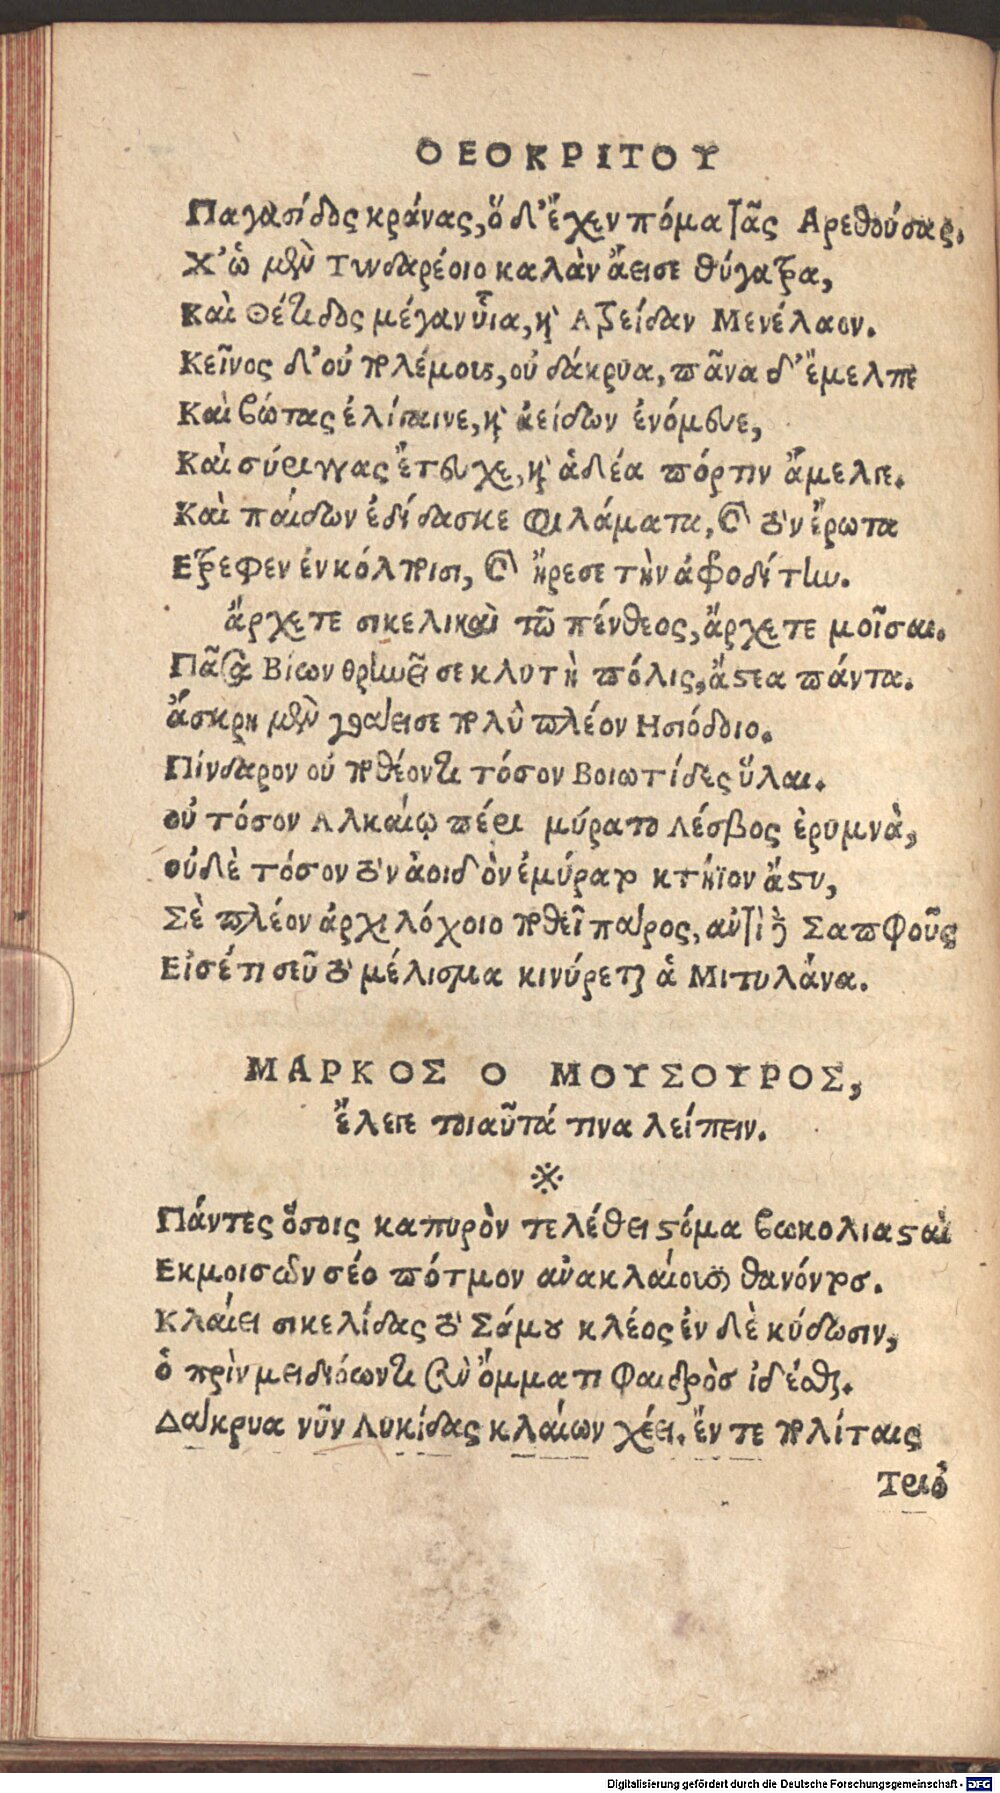 ΘΕΟΚΡΙΤΟΥ
Παγασίδος κράνας, ὅ δ' ἔχεν πόμα τᾶς Αρεθούσας.
Χ' ὠ μὲν Τυνδαρέοιο καλὰν ἄεισε θύγατρα,
Καὶ Θέτιδος μέγαν υἷα, καὶ Ατρείδαν Μενέλαον.
Κεῖνος δ' οὐ πολέμους, οὐ δάκρυα, πᾶνα δ' ἔμελπε
Καὶ βώτας ἐλίπαινε, καὶ ἀείδων ἐνόμευε,
Καὶ σύριγγας ἔτευχε, καὶ ἁδέα πόρτιν ἄμελπε.
Καὶ παίδων ἐδίδασκε φιλάματα, καὶ τὸν ἔρωτα
Ετρεφεν ἐν κόλποισι, καὶ ἤρεσε τὴν ἀφροδίτην.
ἄρχετε σικελικαὶ τῶ πένθεος, ἄρχετε μοῖσαι.
Πᾶσα Βίων θρηνεῖ σε κλυτὴ πόλις, ἄστεα πάντα.
ἄσκρη μὲν γοάεισε πολὺ πλέον Ησιόδοιο.
Πίνδαρον οὐ ποθέοντι τόσον Βοιωτίδες ὕλαι.
οὐ τόσον Αλκαίῳ πέρι μύρατο Λέσβος ἐρυμνὰ,
οὐδὲ τόσον τὸν ἀοιδὸν ἐμύρατο κτήϊον ἄστυ,
Σὲ πλέον ἀρχιλόχοιο ποθεῖ πάρος, αὐτὶ δὲ Σαπφοῦς
Εἰσέτι σεῦ τὸ μέλισμα κινύρεται ἁ Μιτυλάνα.
ΜΑΡΚΟΣ Ο ΜΟΥΣΟΥΡΟΣ,
ἔλεγε τοιαῦτά τινα λείπειν.
Πάντες ὅσοις καπυρὸν τελέθει στόμα βωκολιασταὶ
Εκ μοισῶν σέο πότμον ἀνακλαίουσι θανόντος.
Κλαίει σικελίδας τὸ Σάμου κλέος ἐν δὲ κύδωσιν,
ὁ πρὶν μειδιόωντι σὺν ὄμματι φαιδρὸς ἰδέσθαι.
Δάκρυα νῦν Λυκίδας κλαίων χέει. ἔν τε πολίταις
Τριό
Digitalisierung gefördert durch die Deutsche Forschungsgemeinschaft - DFG